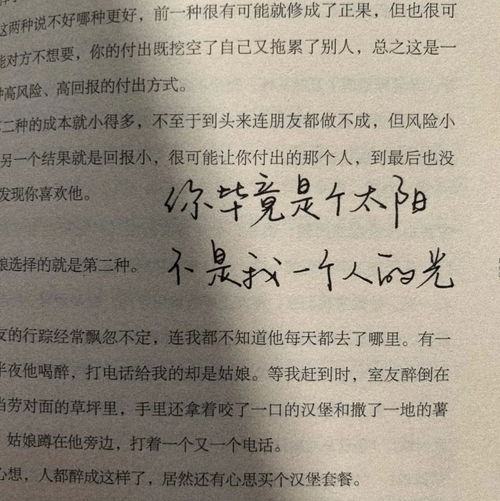 这两种说不好哪种更好，前一种很有可能就修成了正果，但也很可
能对方不想要，你的付出既挖空了自己又拖累了别人，总之这是一
种高风险、高回报的付出方式。
二种的成本就小得多，不至于到头来连朋友都做不成，但风险小
另一个结果就是回报小，很可能让你付出的那个人，到最后也没
发现你喜欢他。
你毕竟是个太阳
娘选择的就是第二种。
不是我一个人的光
友的行踪经常飘忽不定，连我都不知道他每天都去了哪里。有一
半夜他喝醉，打电话给我的却是姑娘。等我赶到时，室友醉倒在
当劳对面的草坪里，手里还拿着咬了一口的汉堡和撒了一地的薯
姑娘蹲在他旁边，打着一个又一个电话。
心想，人都醉成这样了，居然还有心思买个汉堡套餐。